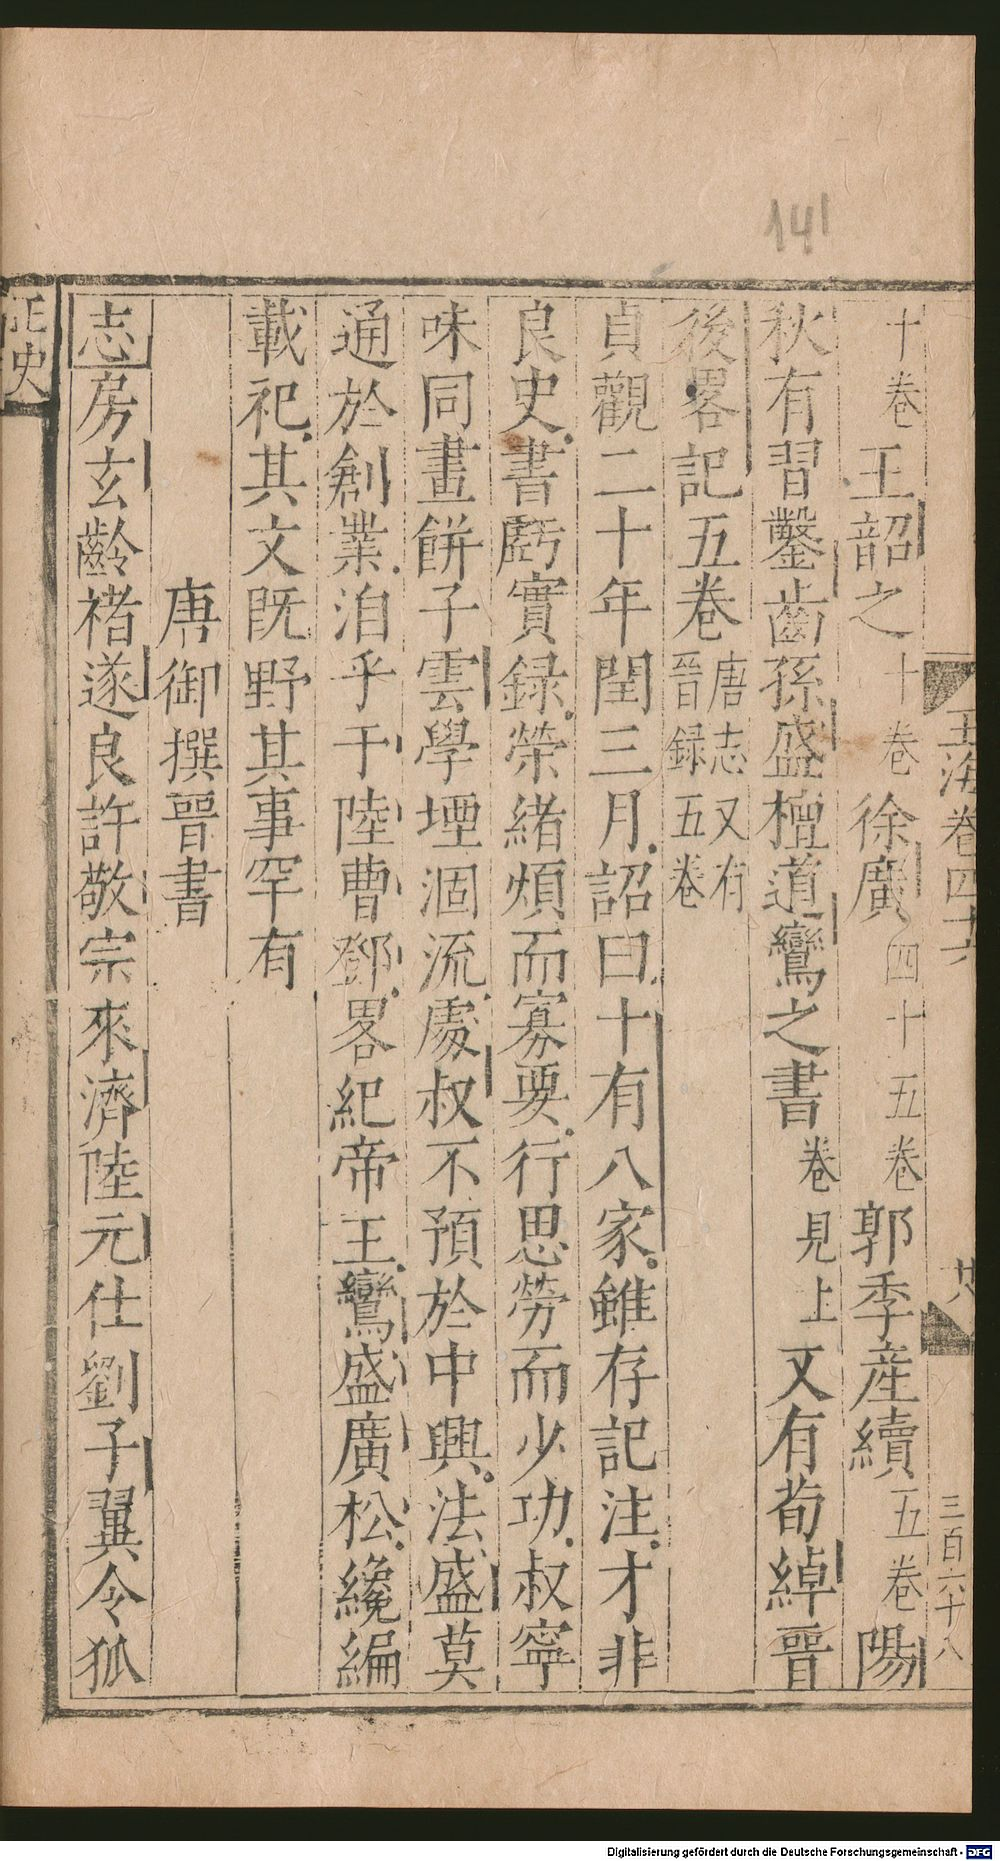 141
玉海卷四十六
廿八
三百六十八
十卷王韶之十卷徐廣四十五卷郭季産續五卷陽
秋有習鑿齒孫盛檀道鸞之書卷見上又有荀綽晉
後畧記五卷唐志又有晉録五卷
貞觀二十年閏三月詔曰十有八家雖存記注才非
良史書虧實録榮緒煩而寡要行思勞而少功叔寧
味同畫餅子雲學堙涸流處叔不預於中興法盛莫
通於創業洎乎干陸曹鄧畧紀帝王鸞盛廣松纔編
載祀其文既野其事罕有
唐御撰晉書
志房玄齡褚遂良許敬宗來濟陸元仕劉子翼令狐
正史
Digitalisierung gefördert durch die Deutsche Forschungsgemeinschaft - DFG